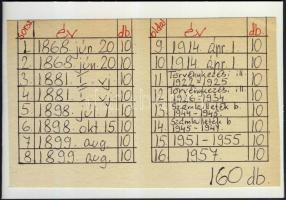 sorsz. év db. oldal év db.
1 1868. jún. 20 10
2 1868. jún. 20 10
3 1881 10
4 1881 10
5 1898. júl. 1 10
6 1898. okt. 15 10
7 1899. aug. 10
8 1899. aug. 10
9 1914. ápr. 1 10
10 1914. ápr. 1 10
11 Törvénykezési ill. 1922-1925 10
12 Törvénykezési ill. 1926-1934 10
13 Számlailleték b. 1944-1945. 10
14 Számlailleték b. 1945-1949. 10
15 1951-1955 10
16 1957. 10
160 db.